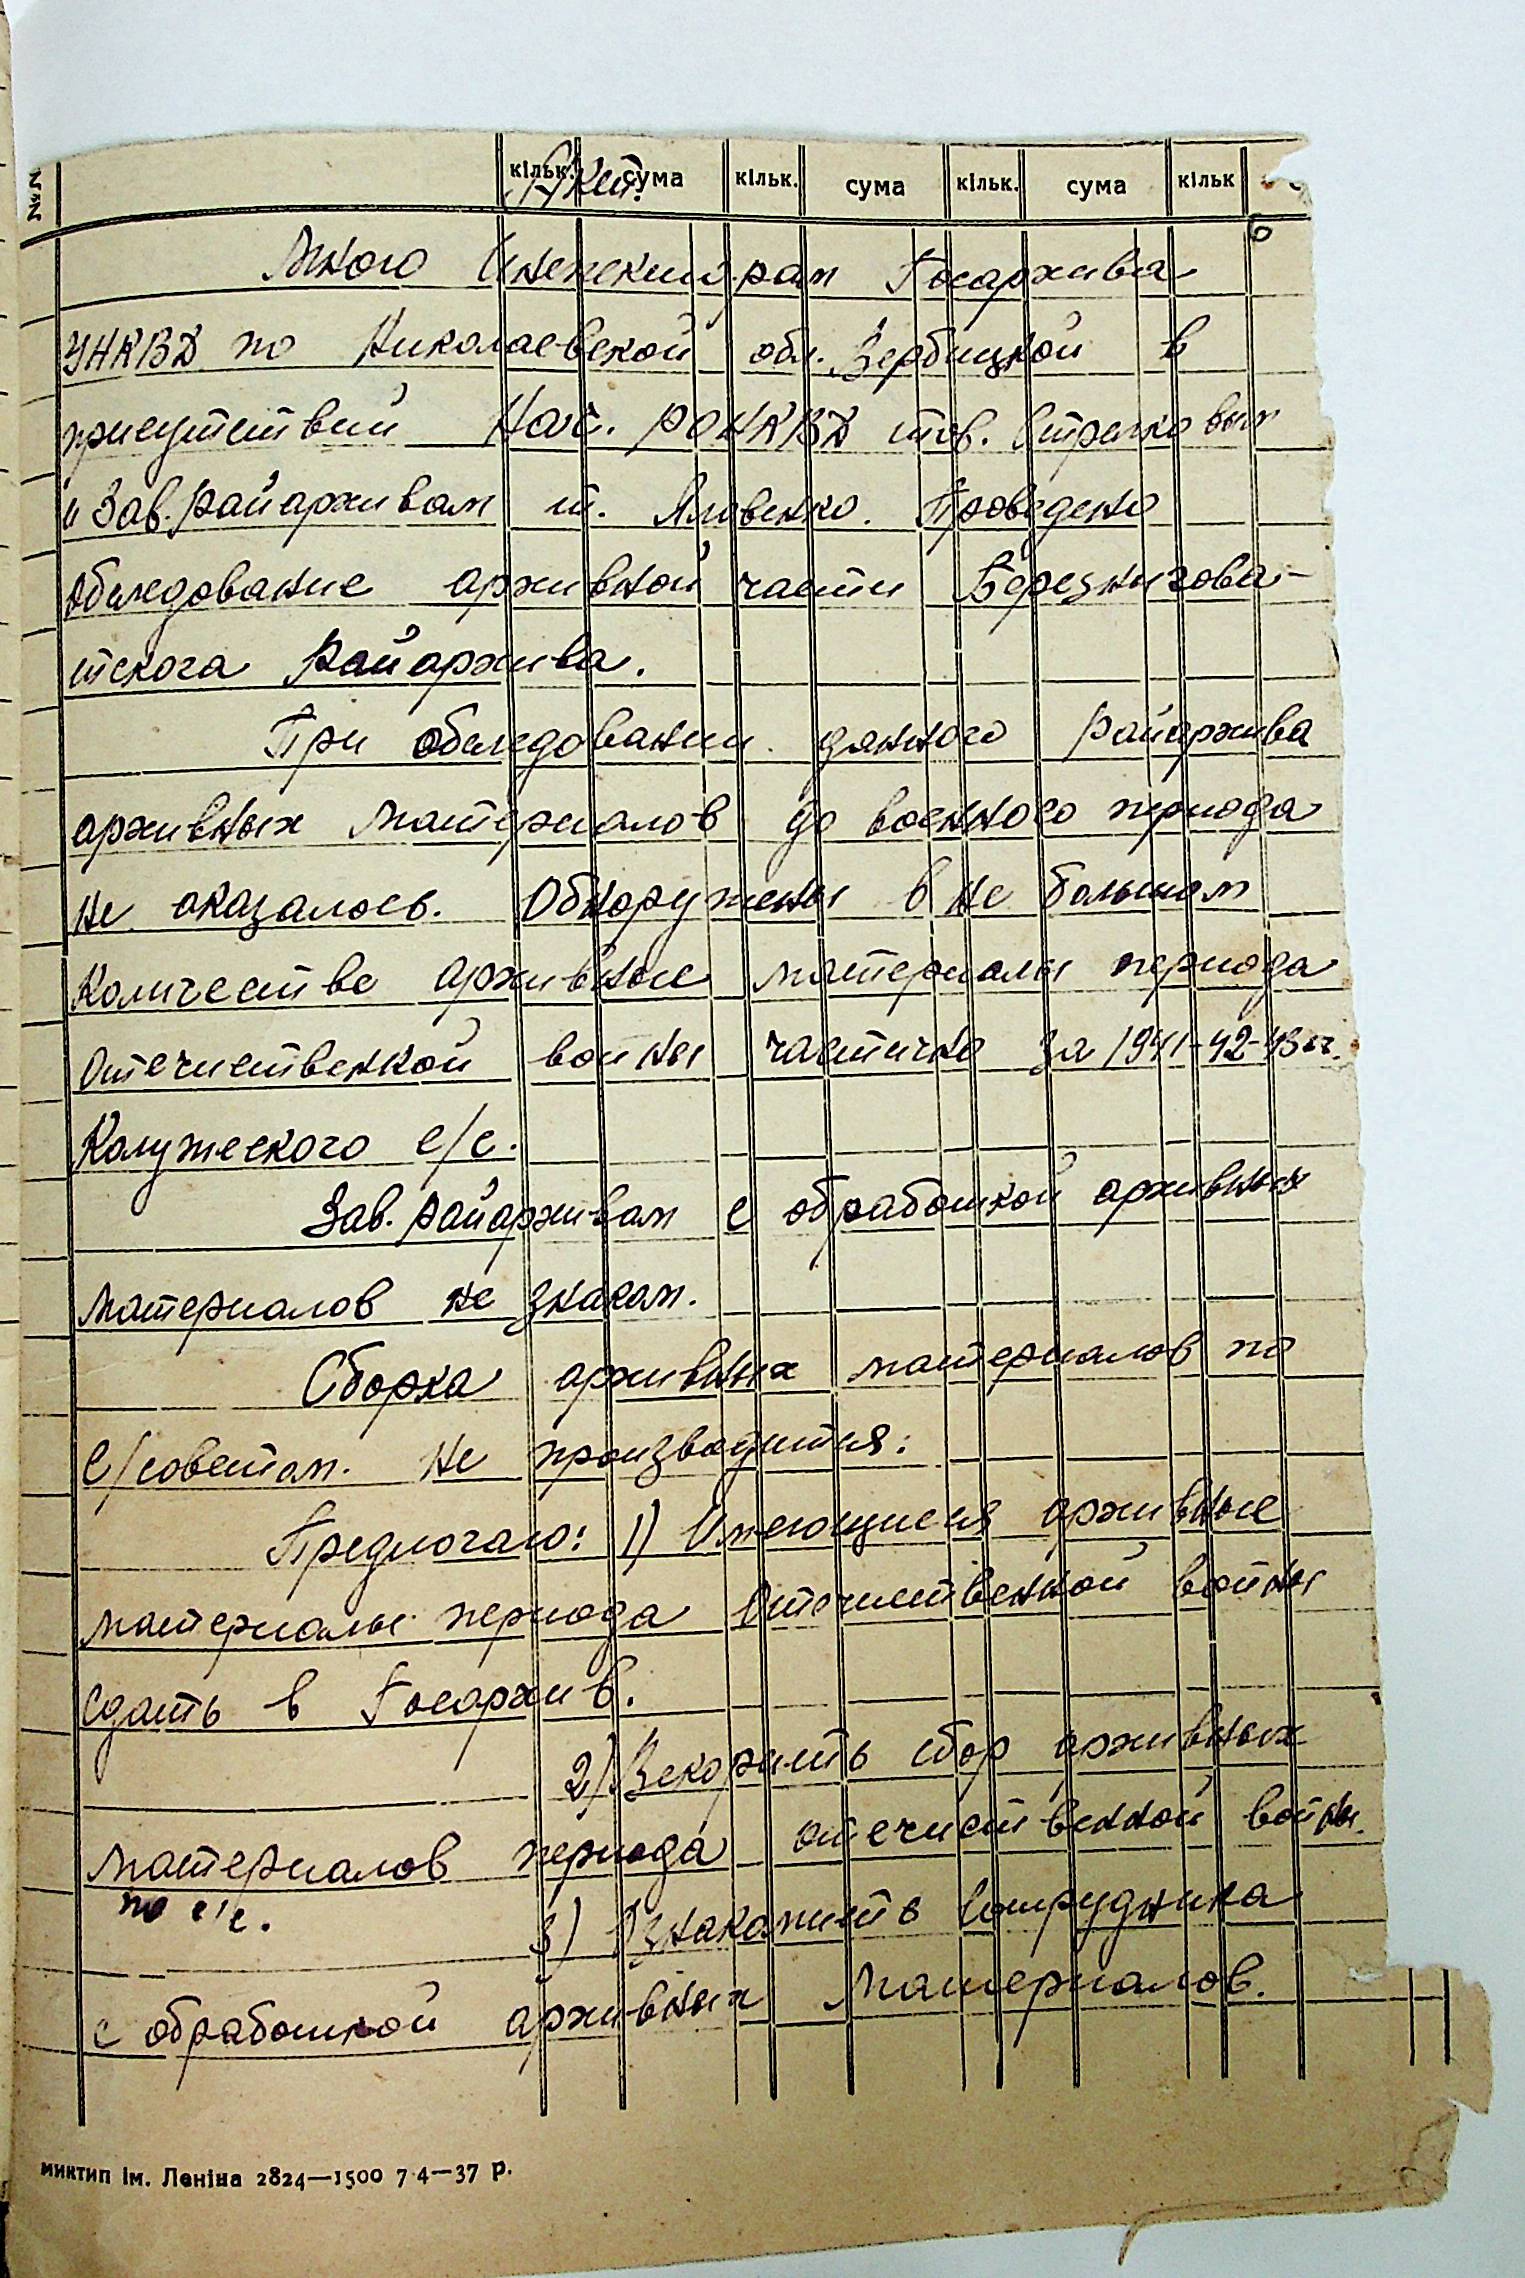 №№ кільк. сума кільк. сума кільк. сума кільк
Акт.
6
Мною Инспектором Госархива
УНКВД по Николаевской обл. Вербицкой в
присутствии Нач. РОНКВД тов. Стрелковым
и Зав. Райархивам т. Яловенко. Проведено
обследование архивной части Березнигова-
тскога Райархива.
При обследовании данного Райархива
архивных материалов до военного периода
не оказалось. Обнаружены в не большом
количестве архивные материалы периода
Отечиственной войны частично за 1941-42-43 гг.
Калужского с/с.
Зав. райархивам с обработкой архивных
материалов не знаком.
Сборка архивных материалов по
с/советам. не производится:
Предлогаю: 1) Имеющиеся архивные
материалы периода Отечиственной войны
сдать в Госархив.
2) Ускорить сбор архивных
материалов периода отечиственной войны.
по с/с.
3) Ознакомить Сотрудника
с обработкой архивных материалов.
миктип ім. Леніна 2824—1500 7 4—37 р.